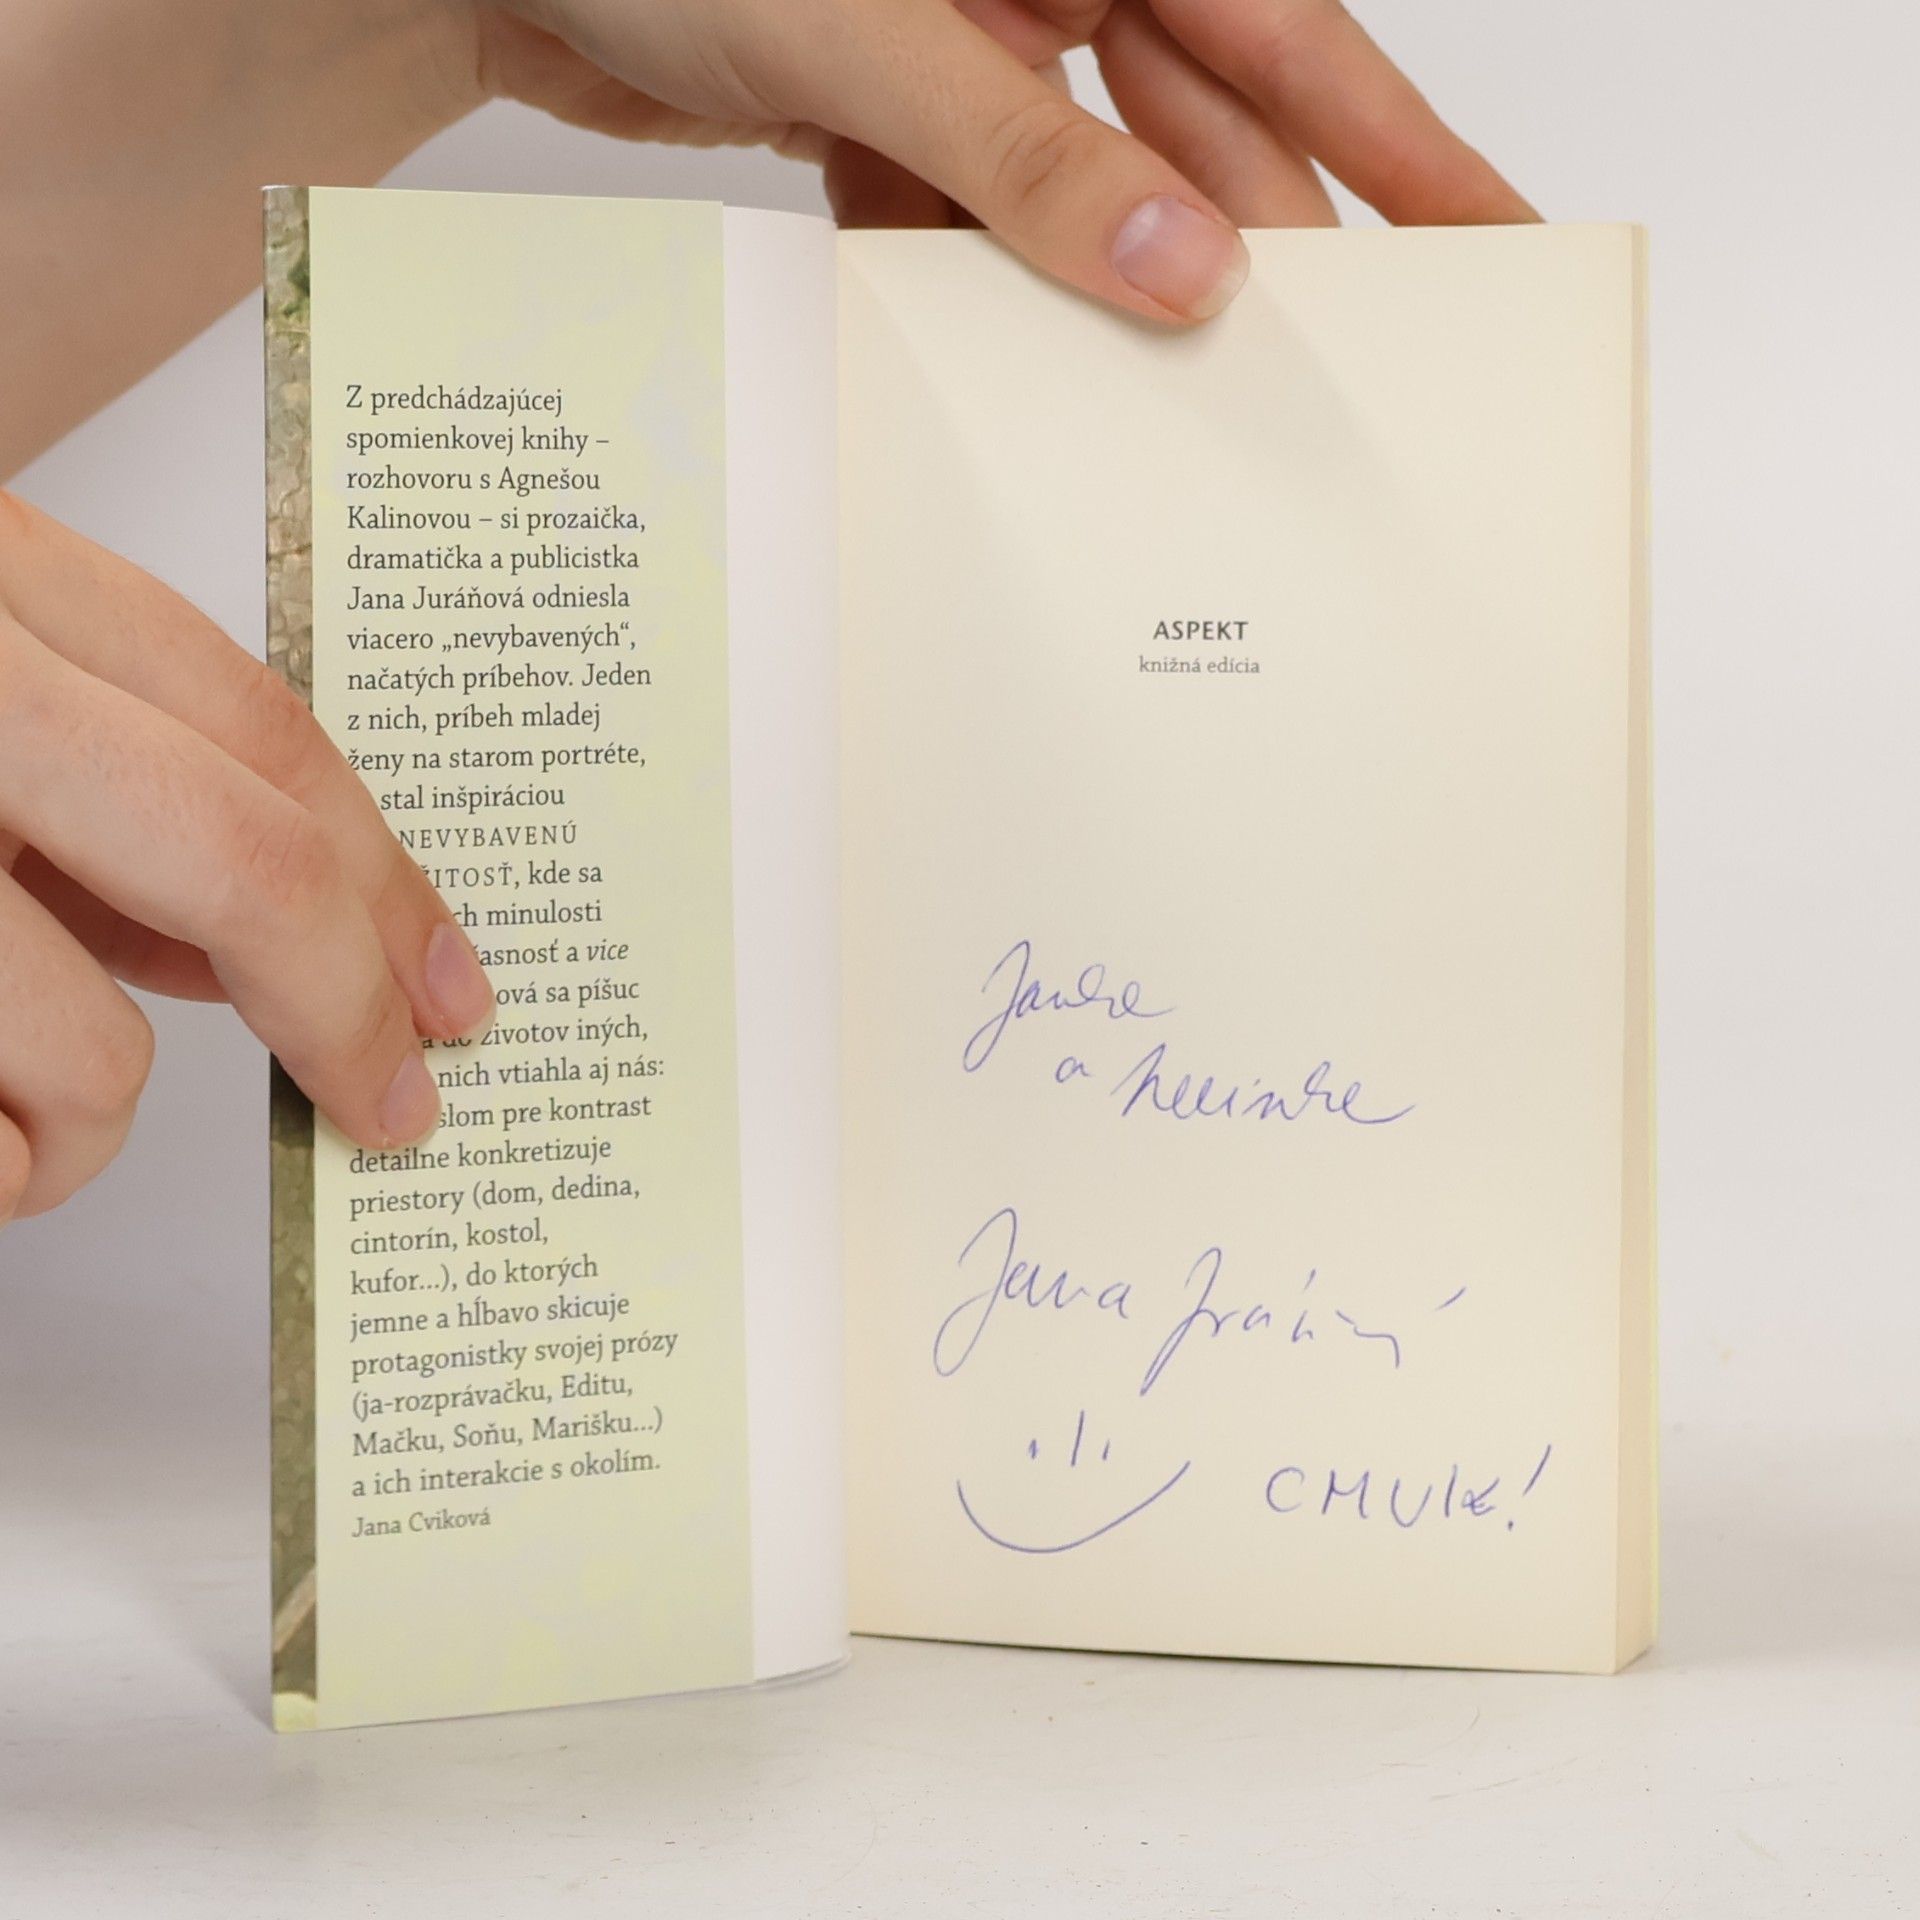 Z predchádzajúcej
spomienkovej knihy –
rozhovoru s Agnešou
Kalinovou – si prozaička,
dramatička a publicistka
Jana Juráňová odniesla
viacero „nevybavených“,
načatých príbehov. Jeden
z nich, príbeh mladej
ženy na starom portréte,
stal inšpiráciou
NEVYBAVENÚ
ŽITOSŤ, kde sa
ch minulosti
asnosť a vice
ová sa píšuc
a do životov iných,
nich vtiahla aj nás:
slom pre kontrast
detailne konkretizuje
priestory (dom, dedina,
cintorín, kostol,
kufor...), do ktorých
jemne a hĺbavo skicuje
protagonistky svojej prózy
(ja-rozprávačku, Editu,
Mačku, Soňu, Marišku...)
a ich interakcie s okolím.
Jana Cviková
ASPEKT
knižná edícia
Janke
a
Jana
CMUK!